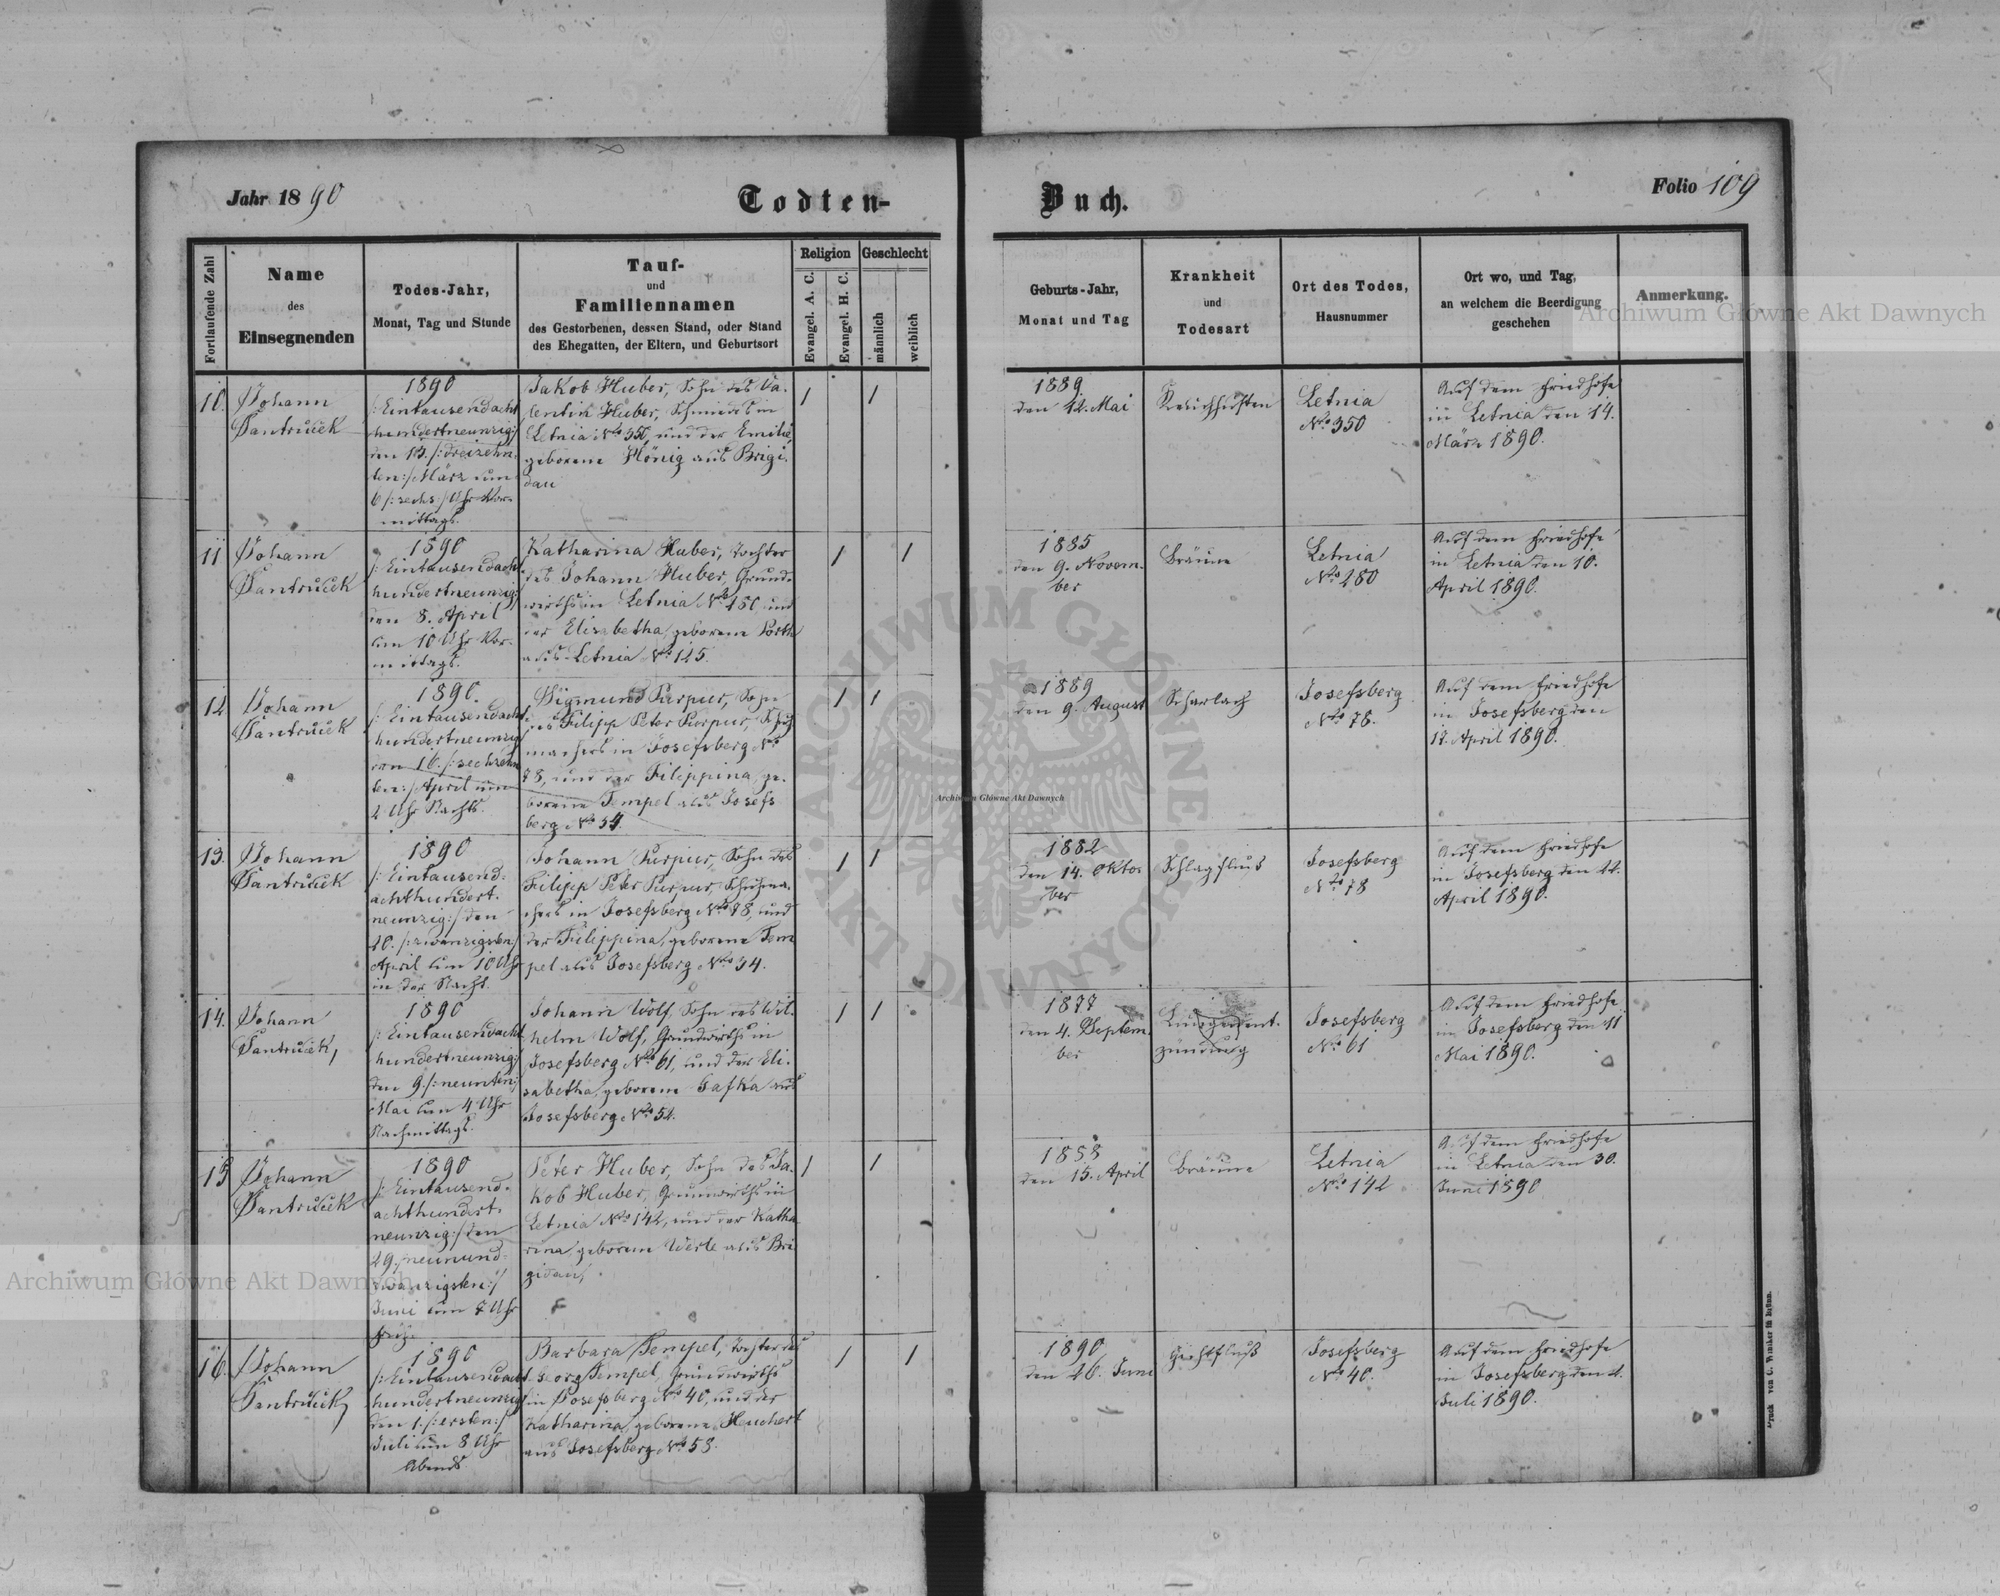 Jahr 1890
Todten-
Buch.
Folio 109
Fortlaufende Zahl
Name
des
Einsegnenden
Todes-Jahr,
Monat, Tag und Stunde
Tauf-
und
Familiennamen
des Gestorbenen, dessen Stand, oder Stand
des Ehegatten, der Eltern, und Geburtsort
Religion
Evangel. A. C.
Evangel. H. C.
Geschlecht
männlich
weiblich
Geburts-Jahr,
Monat und Tag
Krankheit
und
Todesart
Ort des Todes,
Hausnummer
Ort wo, und Tag,
an welchem die Beerdigung
geschehen
Anmerkung.
10.
Johann
1890
/:Eintausendacht
hundertneunzig:/
den 13. /:dreizehn
ten:/ März um
6 /:sechs:/ Uhr Vor-
mittags.
Jakob Huber, Sohn des Va-
lentin Huber, Schmiedes in
Letnia No 350, und der Emilie,
geborene Hönig aus Brigi-
dau
1889
den 12. Mai
Keuchhusten
Letnia
No 350
Auf dem Friedhofe
in Letnia den 14.
März 1890.
11
Johann
1890
/:Eintausendacht
hundertneunzig:/
den 8. April
um 10 Uhr Vor-
mittags.
Katharina Huber, Tochter
des Johann Huber, Grund-
wirths in Letnia No 180 und
der Elisabetha, geborene
aus Letnia No 125.
1885
den 9. Novem-
ber
Bräune
Letnia
No 180
Auf dem Friedhofe
in Letnia den 10.
April 1890.
12
Johann
1890.
/:Eintausendacht
hundertneunzig
den 16. /:sechzehn
ten:/ April um
2 Uhr Nachts.
Sigmund Purpur, Sohn
des Filipp Peter Purpur, Schuh
machers in Josefsberg No
78, und der Filippina, ge-
borene Tempel aus Josefs
berg No 34.
1889
den 9. August
Scharlach
Josefsberg
No 78.
Auf dem Friedhofe
in Josefsberg den
April 1890.
13.
Johann
1890
/:Eintausend-
achthundert-
neunzig:/ den
20. /:zwanzigsten:/
April um 10 Uhr
in der Nacht.
Johann Purpur, Sohn des
Filipp Peter Purpur, Schuhma-
chers in Josefsberg No 78, und
der Filippina, geborene Tem
pel aus Josefsberg No 34.
1882
den 14. Okto-
ber
Schlagfluss
Josefsberg
No 78
Auf dem Friedhofe
in Josefsberg den 22.
April 1890.
14.
Johann
1890
/:Eintausendacht
hundertneunzig:/
den 9. /:neunten:/
Mai um 4 Uhr
Nachmittags.
Johann Wolf, Sohn des Wil-
helm Wolf, Grundwirths in
Josefsberg No 61, und der Eli-
sabetha, geborene aus
Josefsberg No 52.
1877
den 4. Septem-
ber
Lungenent-
zündung
Josefsberg
No 61
Auf dem Friedhofe
in Josefsberg den 11
Mai 1890.
15
Johann
1890
/:Eintausend-
achthundert-
neunzig:/ den
29. /:neunund-
zwanzigsten:/
Juni um 7 Uhr
früh.
Peter Huber, Sohn des Ja-
kob Huber, Grundwirths in
Letnia No 142, und der Katha
rina, geborene Werle aus Bri
gidau.
1858
den 15. April
Bräune
Letnia
No 142
Auf dem Friedhofe
in Letnia den 30.
Juni 1890
16.
Johann
1890
/:Eintausendacht
hundertneunzig:/
den 1. /:ersten:/
Juli um 8 Uhr
Abends
Barbara Tempel, Tochter des
Georg Tempel, Grundwirths
in Josefsberg No 40, und der
Katharina, geborene Heuchert
aus Josefsberg No 58.
1890
den 26. Juni
Josefsberg
No 40.
Auf dem Friedhofe
in Josefsberg den 2.
Juli 1890.
Archiwum Główne Akt Dawnych
Archiwum Główne Akt Dawnych
Archiwum Główne Akt Dawnych
ARCHIWUM GŁÓWNE AKT DAWNYCH